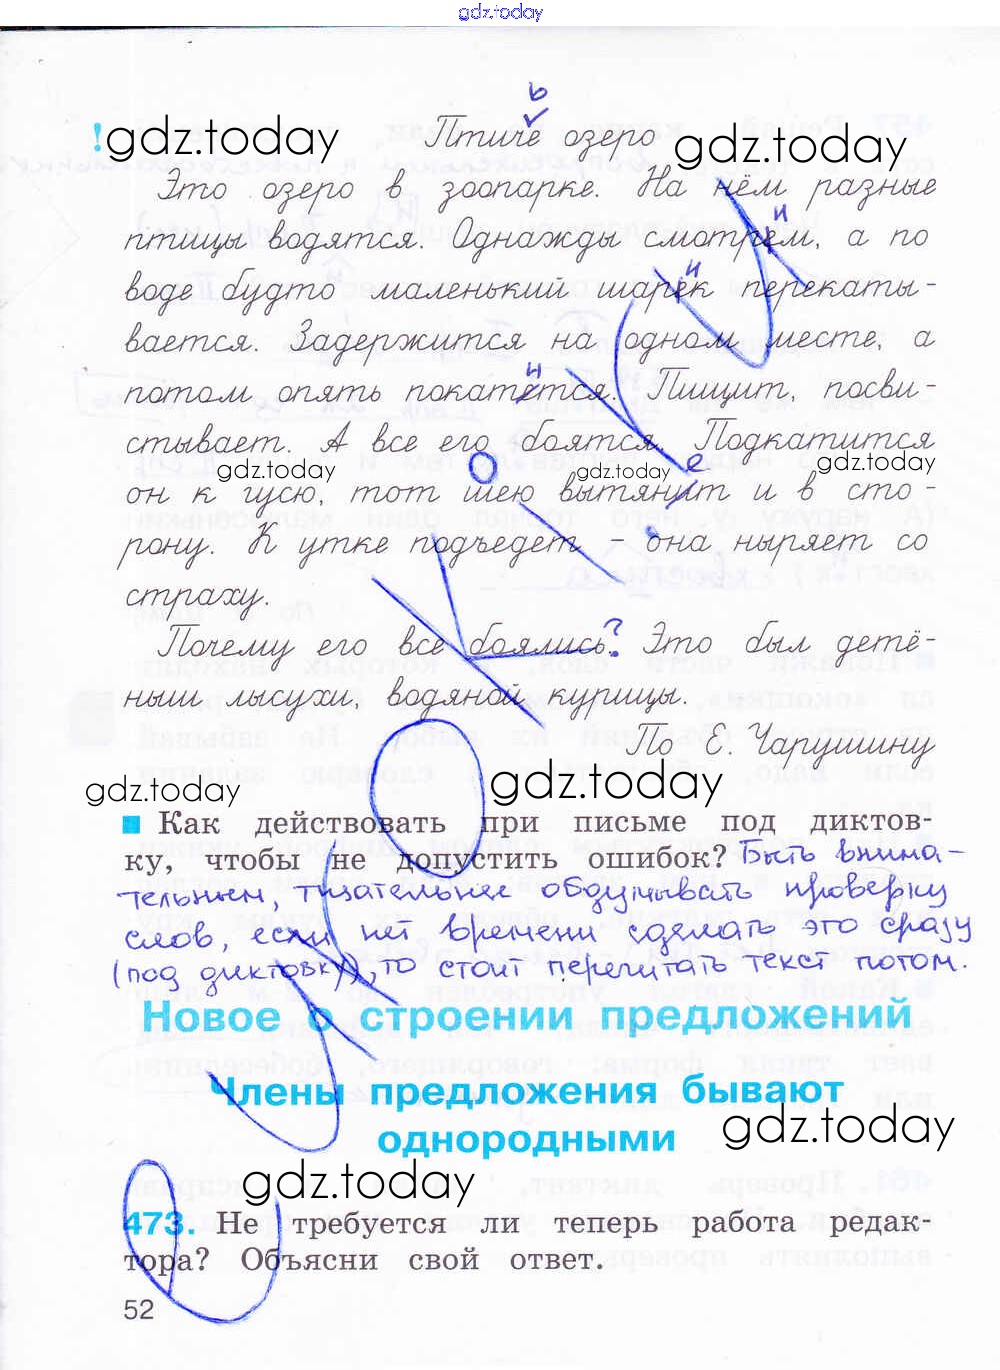 gdz.today
ь
! gdz.today Птиче озеро gdz.today
Это озеро в зоопарке. На нём разные
птицы водятся. Однажды смотрем, а по
и
воде будто маленький шарек перекаты-
и
вается. Задержится на одном месте, а
потом опять покатется. Пищит, посви-
и
стывает. А все его боятся. Подкатится
gdz.today gdz.today gdz.today
он к гусю, тот шею вытянит и в сто-
е
рону. К утке подъедет – она ныряет со
страху.
Почему его все боялись? Это был детё-
ныш лысухи, водяной курицы.
По Е. Чарушину
gdz.today gdz.today
Как действовать при письме под диктов-
ку, чтобы не допустить ошибок? Быть внима-
тельным, тщательнее обдумывать проверку
слов, если нет времени сделать это сразу
(под диктовку), то стоит перечитать текст потом.
Новое о строении предложений
Члены предложения бывают
однородными
gdz.today
gdz.today
473. Не требуется ли теперь работа редак-
тора? Объясни свой ответ.
52